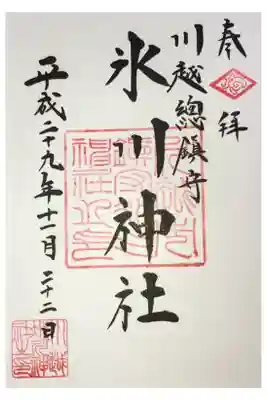 奉拝
川越總鎮守
氷川神社
平成二十九年十一月二十二日